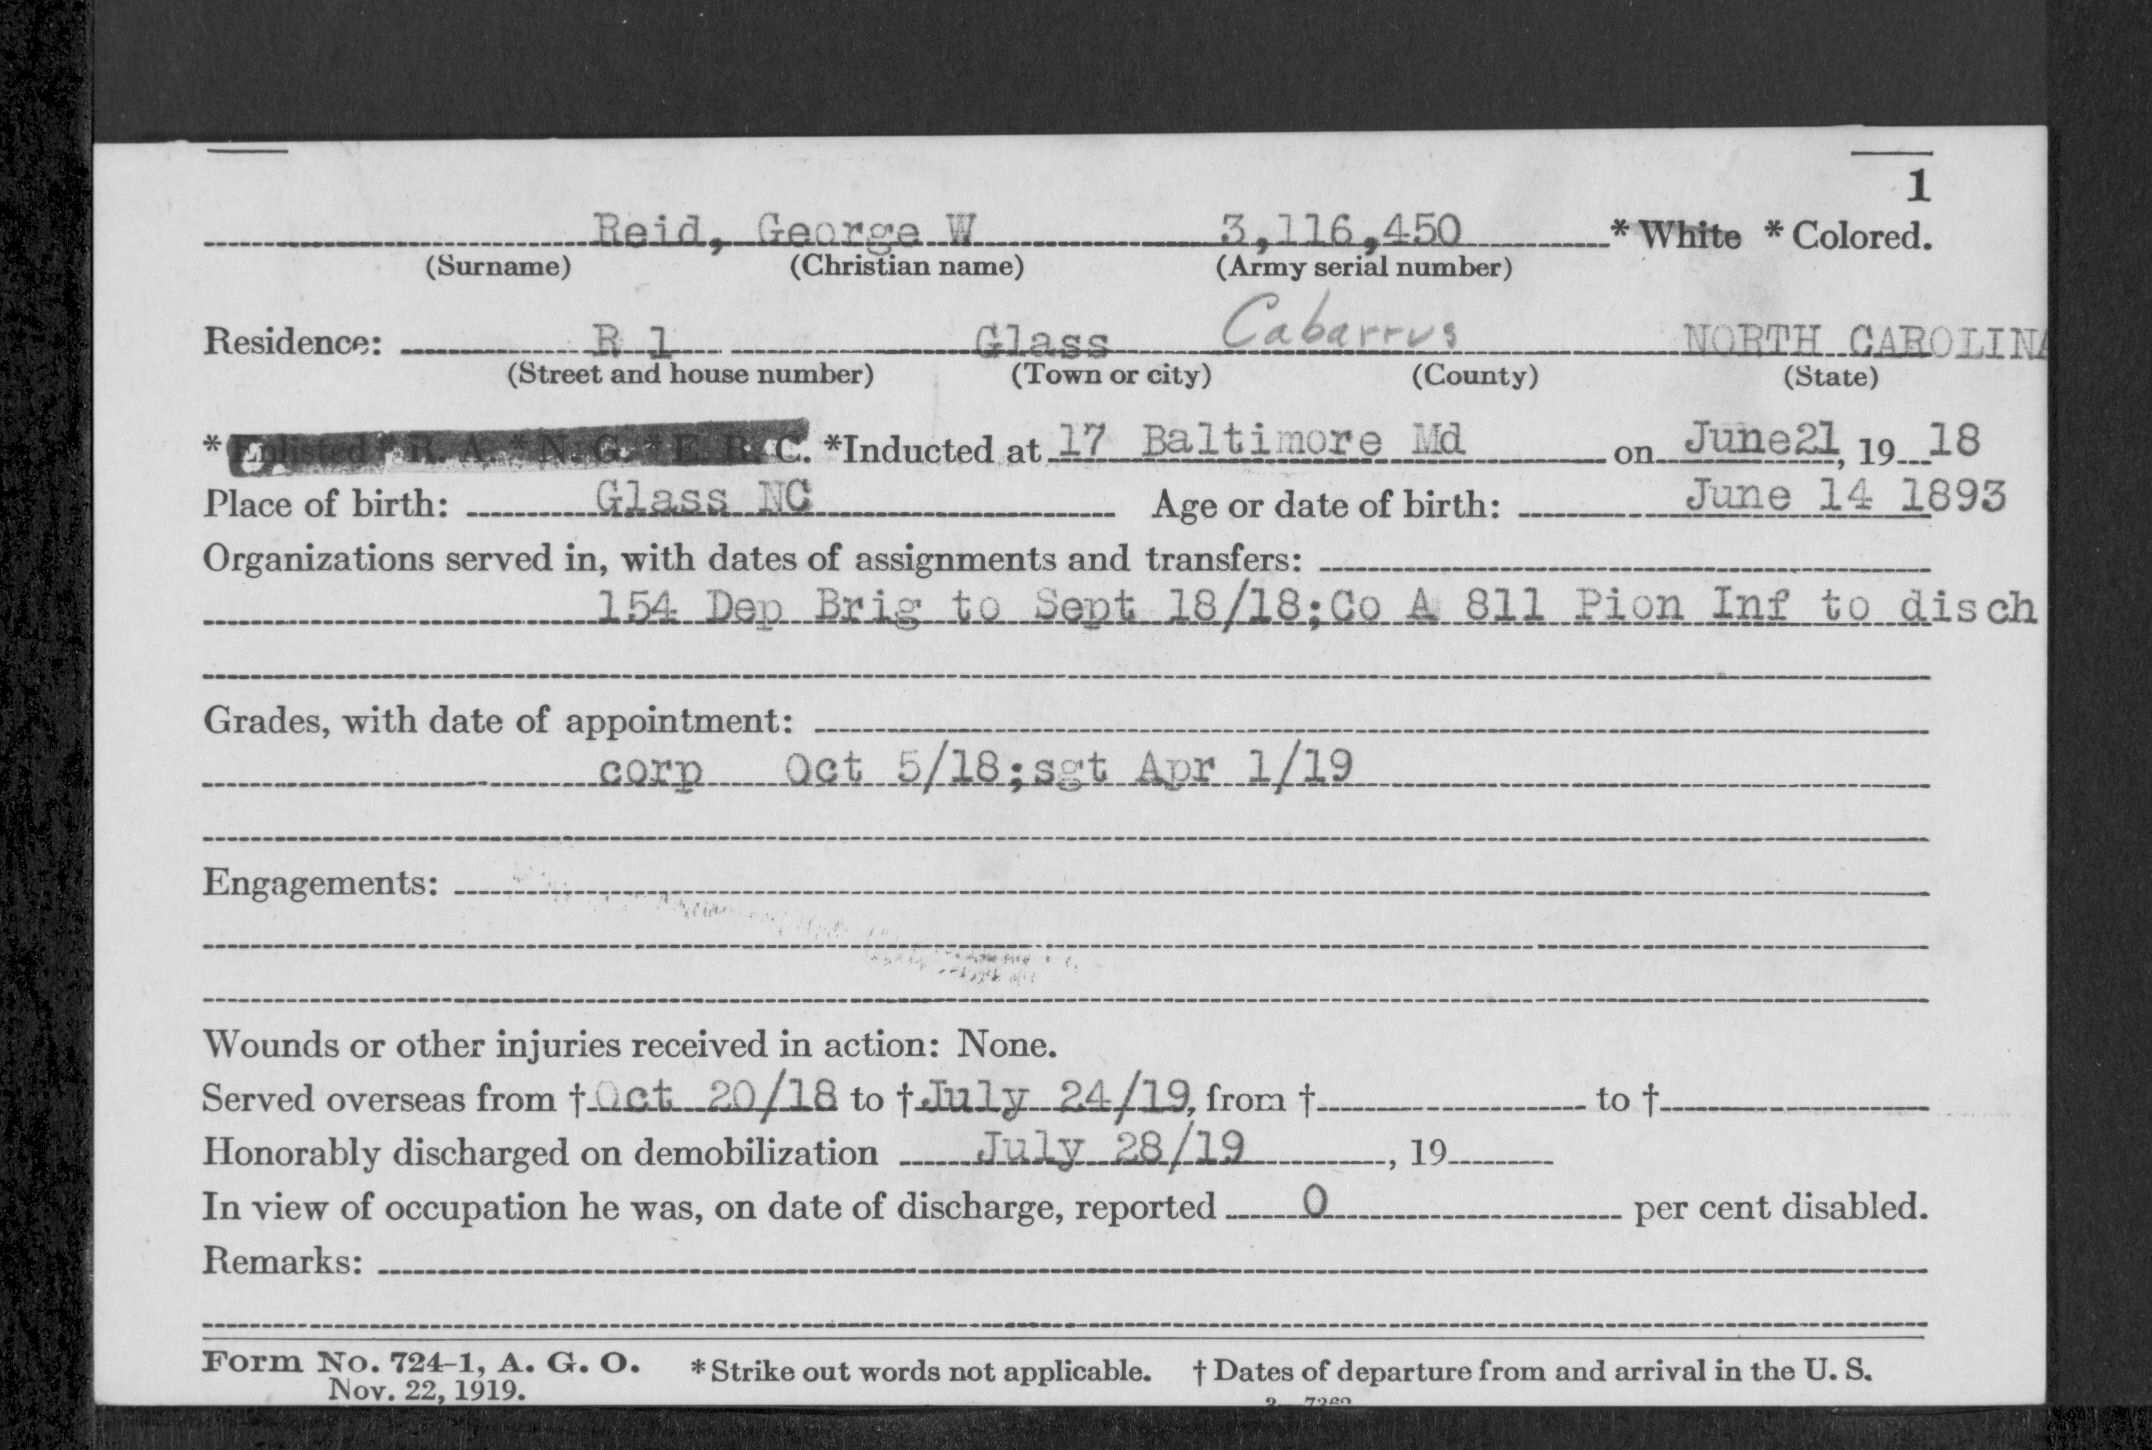 1
Reid, George W 3,116,450 * White * Colored.
(Surname) (Christian name) (Army serial number)
Residence: R 1 Glass Cabarrus NORTH CAROLINA
(Street and house number) (Town or city) (County) (State)
* Enlisted * R. A. * N. G. * E. R. C. *Inducted at 17 Baltimore Md on June21, 19 18
Place of birth: Glass NC Age or date of birth: June 14 1893
Organizations served in, with dates of assignments and transfers:
154 Dep Brig to Sept 18/18;Co A 811 Pion Inf to disch
Grades, with date of appointment:
corp Oct 5/18;sgt Apr 1/19
Engagements:
Wounds or other injuries received in action: None.
Served overseas from † Oct 20/18 to † July 24/19, from † to †
Honorably discharged on demobilization July 28/19, 19
In view of occupation he was, on date of discharge, reported 0 per cent disabled.
Remarks:
Form No. 724-1, A. G. O. * Strike out words not applicable. † Dates of departure from and arrival in the U. S.
Nov. 22, 1919.